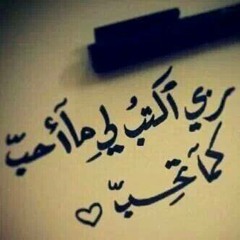 ربي اكتبُ لي مِا أحبّ
كمآ تحِبّ ♡